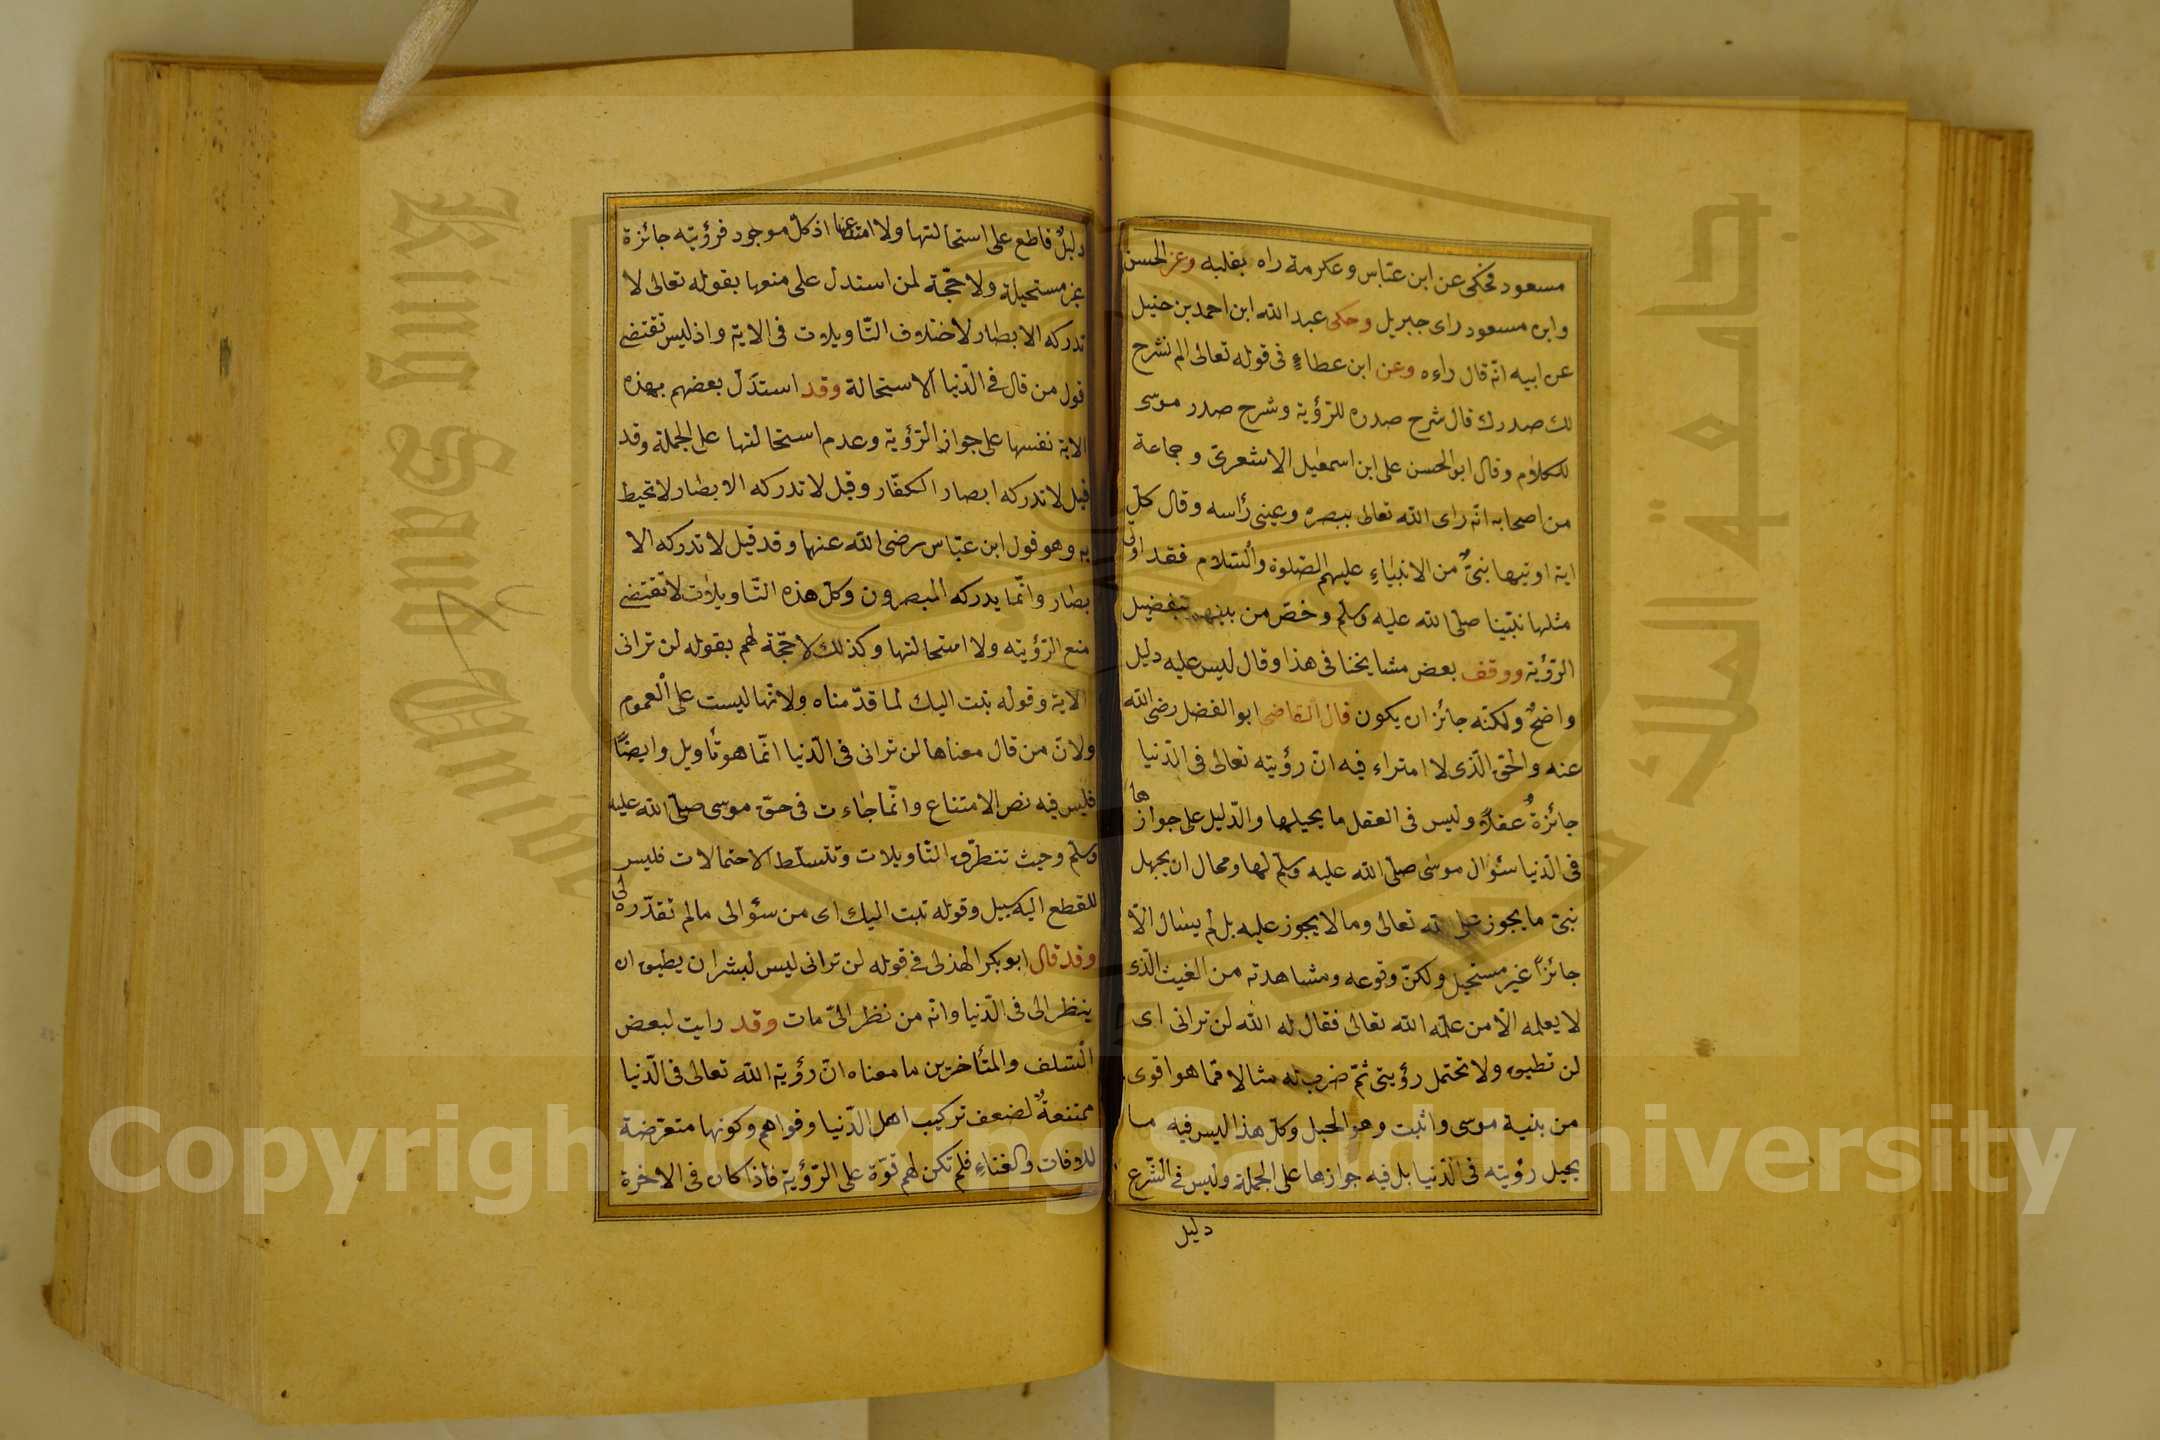 مسعود فحكى عن ابن عبّاس وعكرمة راه بقلبه وعن الحسن
وابن مسعود راى جبريل وحكى عبد الله ابن احمد بن حنبل
عن ابيه انّه قال راءه وعن ابن عطاء فى قوله تعالى الم نشرح
لك صدرك قال شرح صدره للرّؤية وشرح صدر موسى
للكلام وقال ابو الحسن على ابن اسمعيل الاشعرىّ وجماعة
من اصحابه انّه راى الله تعالى ببصره وعينى رأسه وقال كلّ
اية اوتيها نبىّ من الانبياء عليهم الصّلوة والسّلام فقد اوتى
مثلها نبيّنا صلّى الله عليه وسلّم وخصّ من بينهم بتفضيل
الرّؤية ووقف بعض مشايخنا فى هذا وقال ليس عليه دليل
واضح ولكنّه جائز ان يكون قال القاضى ابو الفضل رضى الله
عنه والحق الّذى لا امتراء فيه انّ رؤيته تعالى فى الدّنيا
جائزة عقلاً وليس فى العقل ما يحيلها والدّليل على جوازها
فى الدّنيا سئوال موسى صلّى الله عليه وسلّم لها ومحال ان يجهل
نبىّ ما يجوز على الله تعالى وما لا يجوز عليه بل لم يسال الّا
جائزاً غير مستحيل ولكنّ وقوعه ومشاهدته من الغيب الّذى
لا يعلمه الّا من علّمه الله تعالى فقال له الله لن ترانى اى
لن تطيق ولا تحتمل رؤيتى ثمّ ضرب له مثالا ممّا هو اقوى
من بنية موسى واثبت وهو الجبل وكلّ هذا ليس فيه ما
يحيل رؤيته فى الدّنيا بل فيه جوازها على الجملة وليس فى الشّرع
دليل
دليلٌ قاطع على استحالتها ولا امتناعها اذ كلّ موجود فرؤيته جائزة
غير مستحيلة ولا حجّة لمن استدل على منعها بقوله تعالى لا
تدركه الابصار لاختلاف التّاويلات فى الاية واذ ليس تقتضى
قول من قال فى الدّنيا الاستحالة وقد استدلّ بعضهم بهذه
الاية نفسها على جواز الرّؤية وعدم استحالتها على الجملة وقد
قيل لا تدركه ابصار الكفّار وقيل لا تدركه الابصار لا تحيط
به وهو قول ابن عبّاس رضى الله عنهما وقد قيل لا تدركه الا
بصار وانّما يدركه المبصرون وكلّ هذه التّاويلات لا تقتضى
منع الرّؤيته ولا استحالتها وكذلك لا حجّة لهم بقوله لن ترانى
الاية وقوله تبت اليك لما قدّمناه ولانّها ليست على العموم
ولانّ من قال معناها لن ترانى فى الدّنيا انّما هو تأويل وايضاً
فليس فيه نص الامتناع وانّما جاءت فى حقّ موسى صلّى الله عليه
وسلّم وحيث تتطرّق التّاويلات وتتسلّط الاحتمالات فليس
للقطع اليه سبيل وقوله تبت اليك اى من سئوالى ما لم تقدّره لى
وقد قال ابو بكر الهذلى فى قوله لن ترانى ليس لبشر ان يطيق ان
ينظر الى فى الدّنيا وانّه من نظر الىّ مات وقد رايت لبعض
السّلف والمتأخرين ما معناه انّ رؤية الله تعالى فى الدّنيا
ممتنعةٌ لضعف تركيب اهل الدّنيا وقواهم وكونها متعرّضة
للافات والفناء فلم تكن لهم قوّة على الرّؤية فاذا كان فى الاخرة
Copyright © King Saud University
King Saud University
جامعة الملك